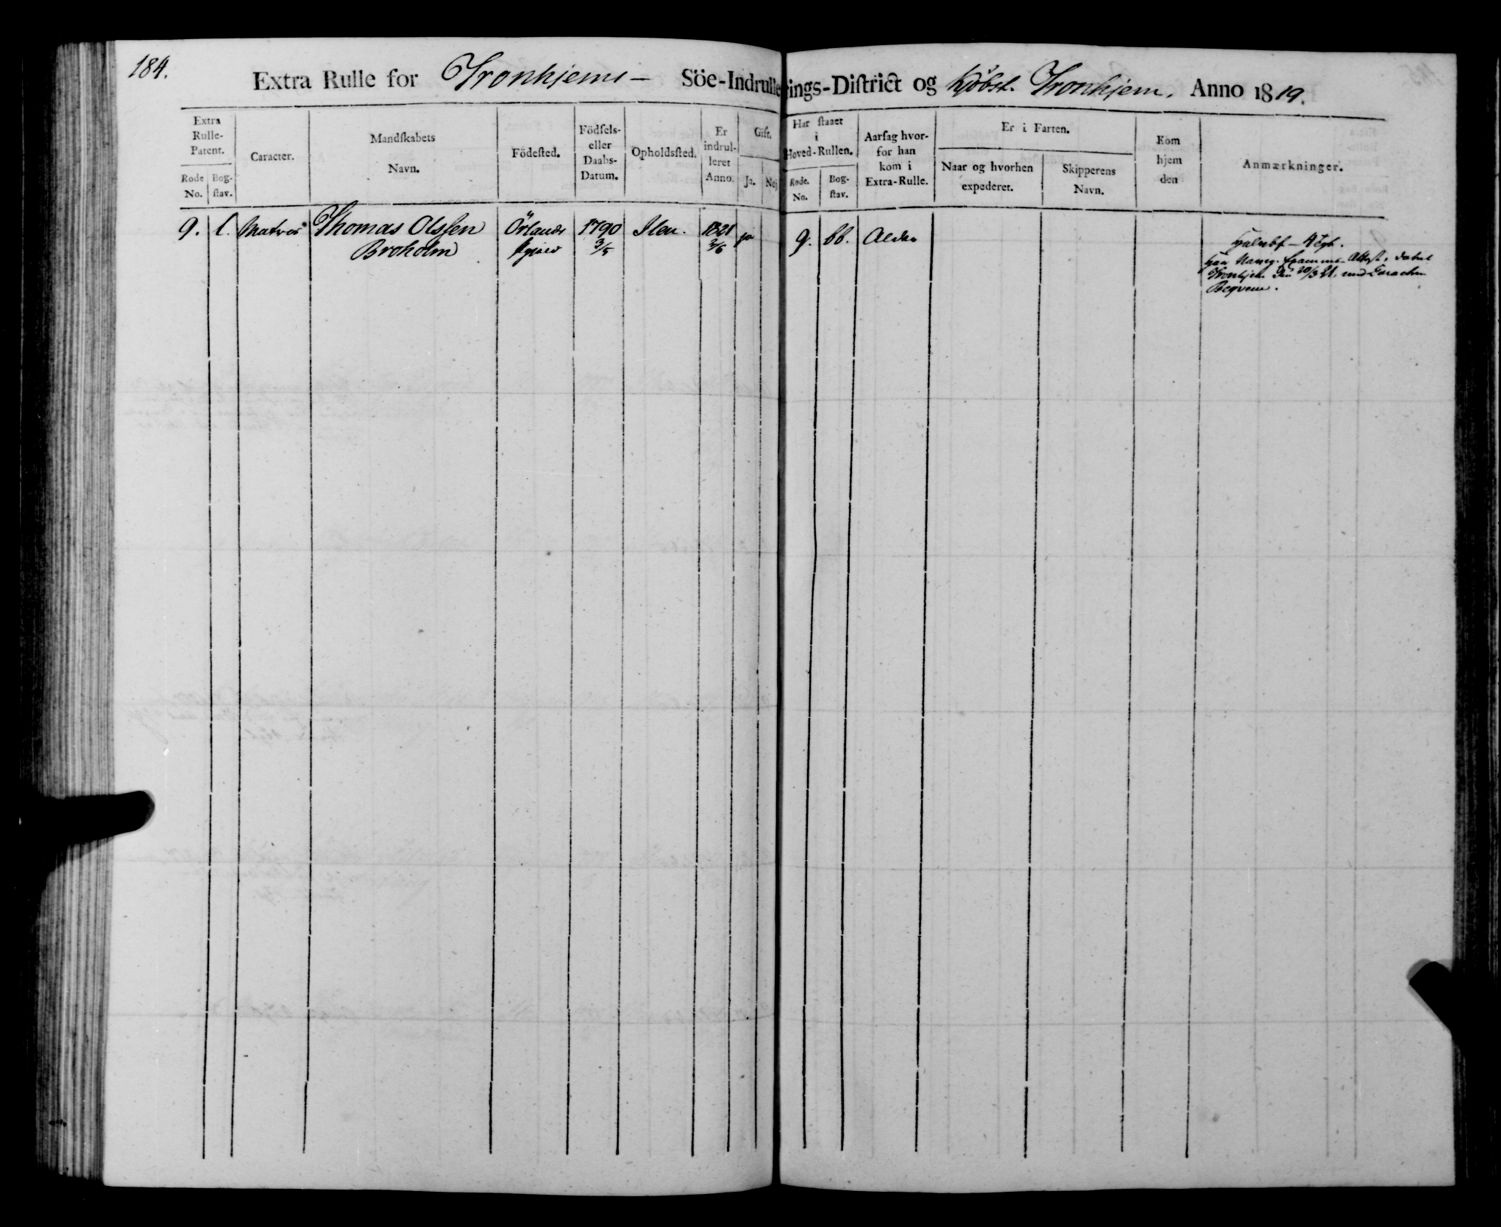 184.
Extra Rulle for Tronhjems- Söe-Indrullerings-District og Kjöbst. Tronhjem. Anno 1819.
Extra Rulle-Patent.
Rode No.
Bog-stav.
Caracter.
Mandskabets Navn.
Födested.
Födsels- eller Daabs-Datum.
Opholdsted.
Er indrulleret Anno.
Gift.
Ja.
Nej
Har staaet i Hoved-Rullen.
Rode. No.
Bog-stav.
Aarsag hvorfor han kom i Extra-Rulle.
Er i Farten.
Naar og hvorhen expederet.
Skipperens Navn.
Kom hjem den
Anmærkninger.
9. l. Matros Thomas Olssen Örlands 1790 Ilen. 1821 ja 9. bb. Alder
Broholm 3/5